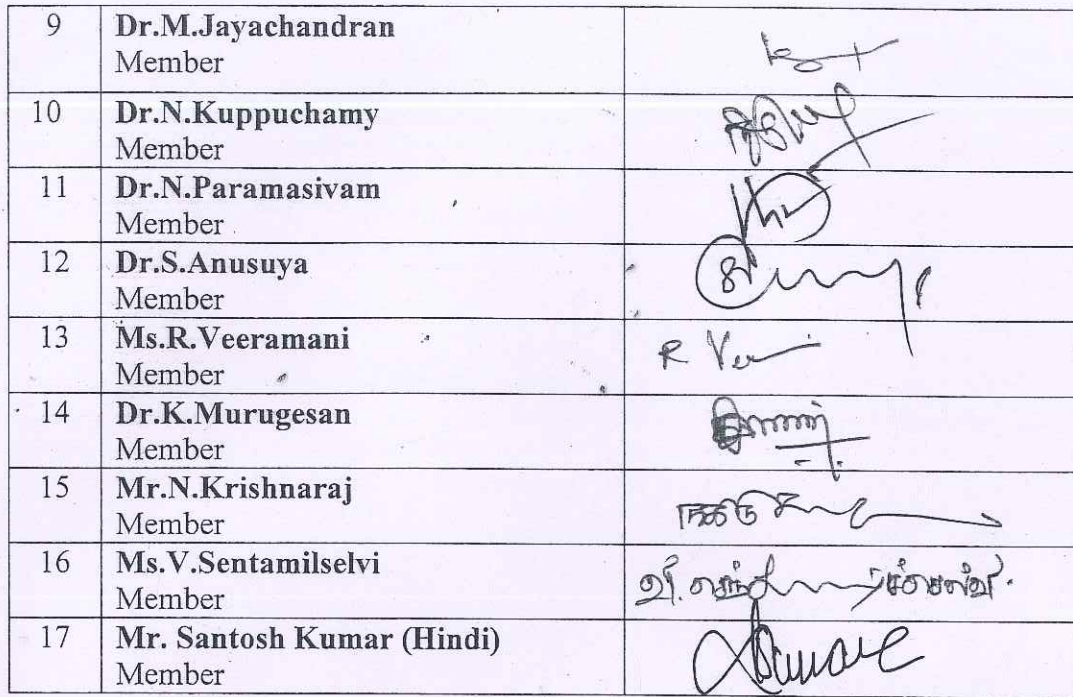 9 Dr.M.Jayachandran
Member
10 Dr.N.Kuppuchamy
Member
11 Dr.N.Paramasivam
Member
12 Dr.S.Anusuya
Member
13 Ms.R.Veeramani
Member
R Vee
14 Dr.K.Murugesan
Member
15 Mr.N.Krishnaraj
Member
16 Ms.V.Sentamilselvi
Member
17 Mr. Santosh Kumar (Hindi)
Member